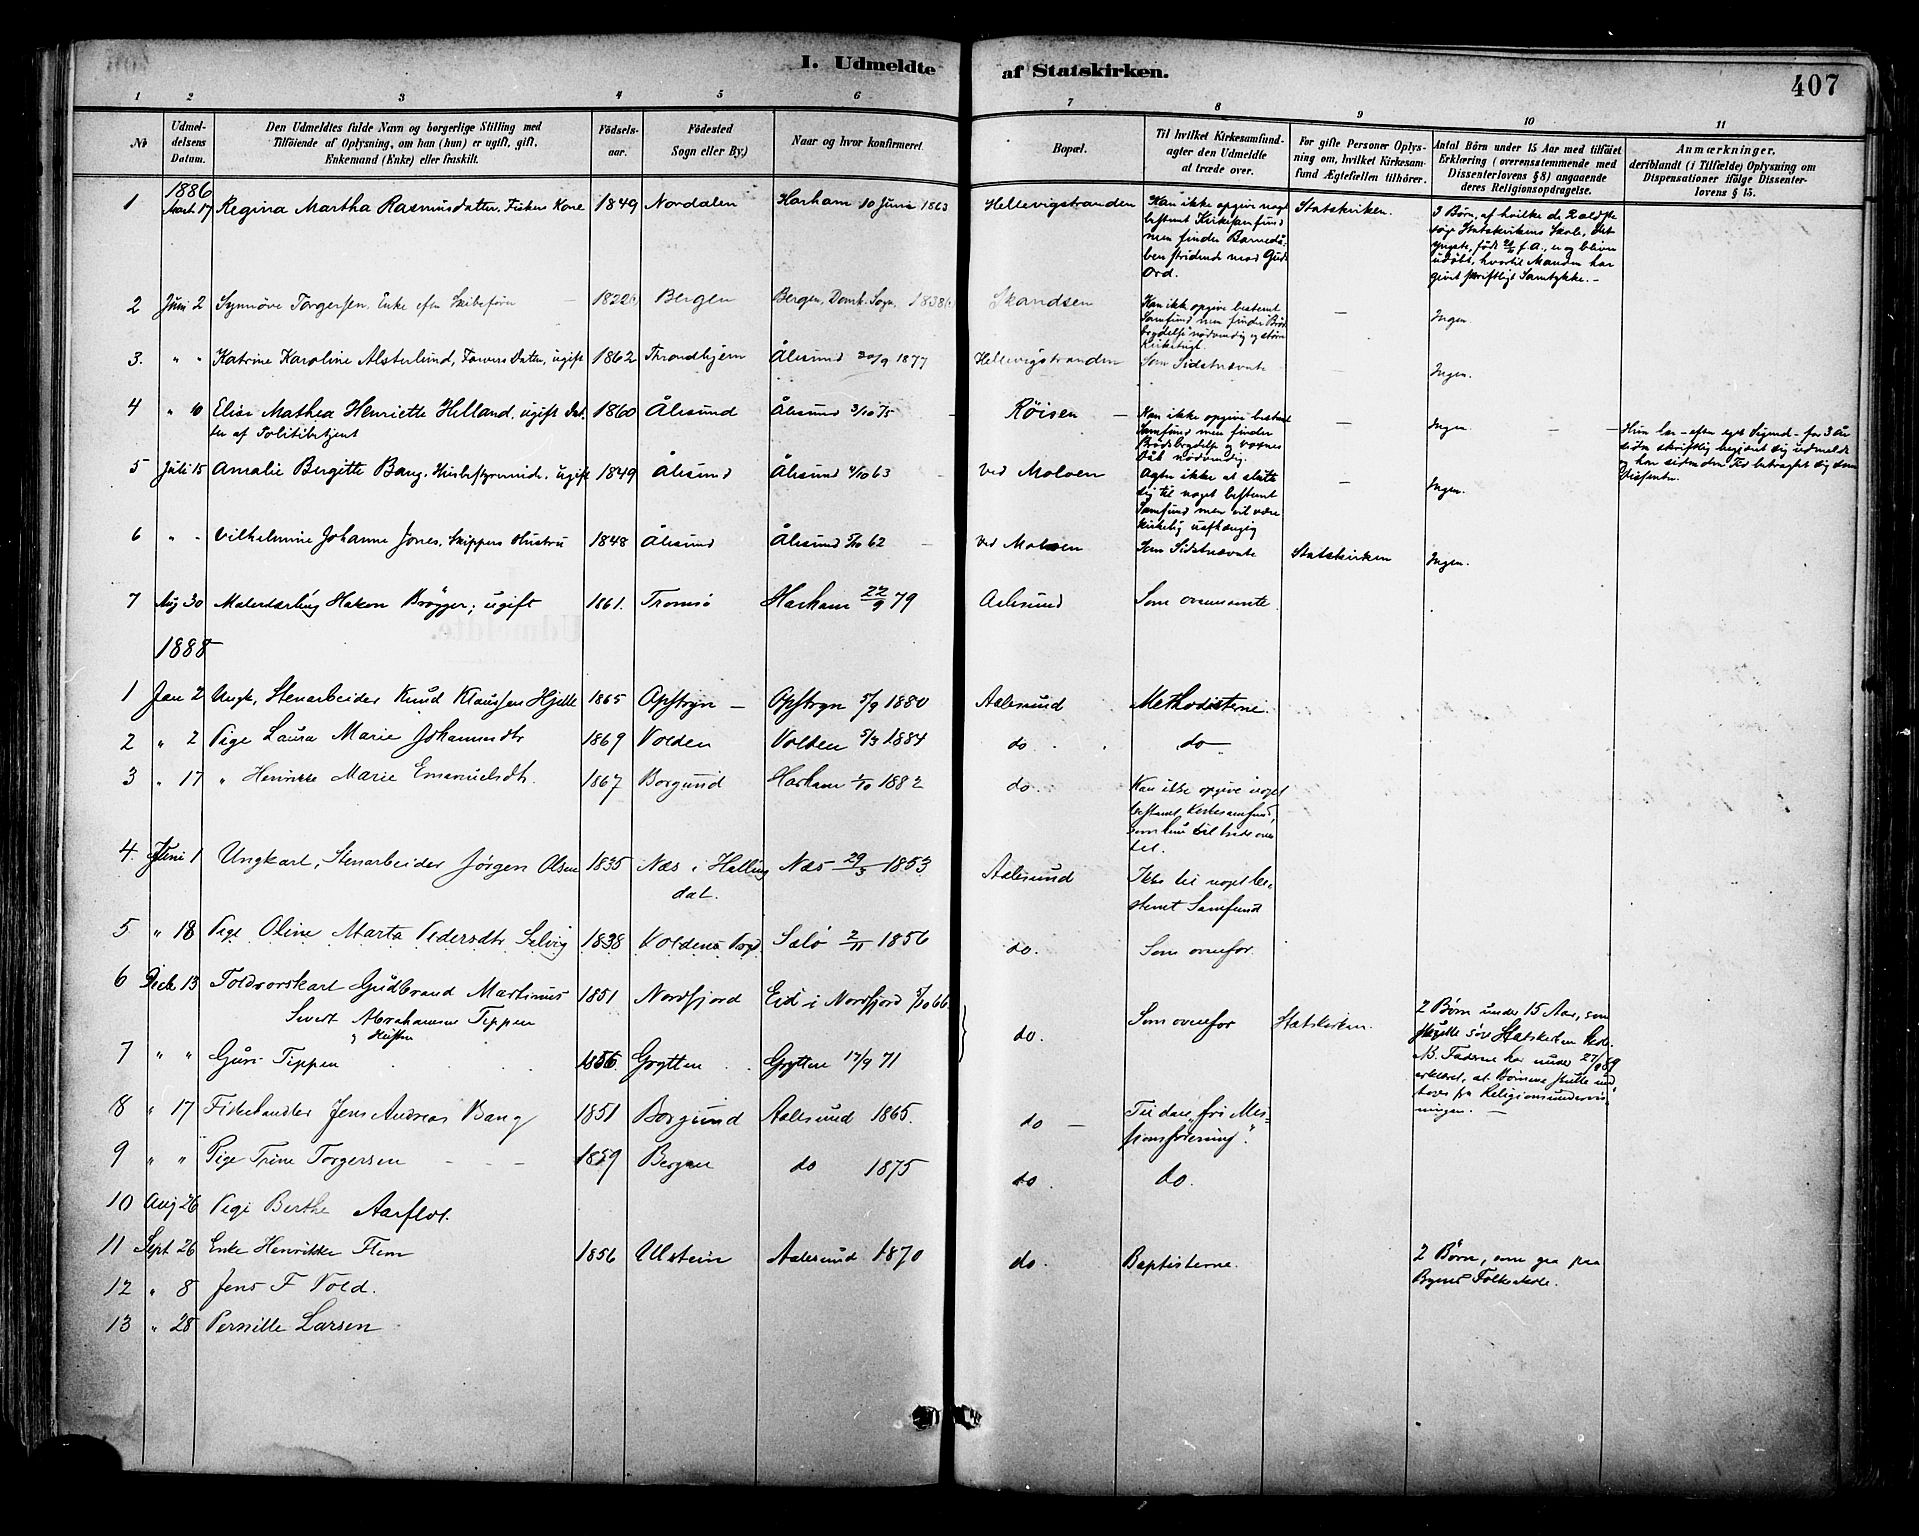 I. Udmeldte af Statskirken.
407
1 2 3 4 5 6 7 8 9 10 11
No
Udmeldelsens Datum.
Den Udmeldtes fulde Navn og borgerlige Stilling med
Tilföiende af Oplysning, om han (hun) er ugift, gift,
Enkemand (Enke) eller fraskilt.
Födselsaar.
Födested
Sogn eller By.)
Naar og hvor konfirmeret.
Bopæl.
Til hvilket Kirkesamfund
agter den Udmeldte
at træde over.
For gifte Personer Oplys-
ning om, hvilket Kirkesam-
fund Ægtefællen tilhörer.
Antal Börn under 15 Aar med tilföiet
Erklæring (overensstemmende med
Dissenterlovens § 8) angaaende
deres Religionsopdragelse.
Anmærkninger,
deriblandt (i Tilfælde) Oplysning om
Dispensationer ifölge Dissenter-
lovens § 15.
1886
1 Marts 17 Regina Martha Rasmusdatter, Fiskers Kone 1849 Nordalen Harham 10 Juni 1863 Hellevigstranden Kan ikke opgive noget Statskirken. 3 Børn, af hvilke de 2 ældste
bestemt Kirkesamfund søge Statskirkens Skole, det
men finder Barnedå- yngste, født f. A., er og bliver
ben stridende mod Guds udøbt, hvortil Manden har
Ord. givet skriftligt Samtykke. -
2 Juni 2 Synnøve Torgersen, Enke efter 1822 Bergen Bergen, Domk. Sogn, 1838 Skandsen Kan ikk opgive bestemt - Ingen.
Samfund men finder Brøds-
brydelse nødvendig og
Kirketugt.
3. " " Katrine Karoline Alsterlund, Farvers Datter, ugift 1862 Throndhjem Ålesund 30/9 1877 Hellevigstranden Som Sidstnævnte - Ingen.
4 " 10 Elise Mathea Henriette Helland, ugift Dat- 1860 Ålesund Ålesund 3/10 75 - Røisen - Kan ikke opgive bestemt - Ingen. - -
ter af Politibetjent Samfund men finder
Brødsbrydelse og voxnes
Dåb nødvendig.
Hun har - efter eget Sigend - for 3 År
siden skriftlig begjært sig udmeldt
og har siden den Tid betragtet sig som
Dissenter.
5 Juli 15 Amalie Bergitte Bang, ugift 1849 Ålesund Ålesund 4/10 63 ved Moloen Agter ikke at slutte - Ingen.
sig til noget bestemt
Samfund men vil være
kirkelig uafhængig
6 " - Vilhelmine Johanne Jones, Skippers Hustru 1848 Ålesund Ålesund 5/10 62 - ved Moloen Som Sidstnævnte Statskirken Ingen.
7 Aug 30 Malerlærling Hakon Brøgger; ugift 1861. Tromsø Harham 22/9 79 Aalesund Som ovennævnte
1888
1 Jan 2 Ungk, Stenarbeider Knud Klaussen Hjelle 1865 Opstryn - Opstryn 5/9 1880 Aalesund Methodisterne.
2 " 2 Pige Laura Marie Johannesdtr 1869 Volden Volden 5/3 1884 do . do -
3 " 17 " Henrikke Marie Emanuelsdtr. 1867 Borgund Harham 1/10 1882 do. Kan ikke opgive noget
bestemt Kirkesamfund,
som hun vil træde over
til.
4. Juni 1 Ungkarl, Stenarbeider Jørgen Olsen 1835 Næs i Halling Næs 29/3 1853 Aalesund Ikke til noget be-
dal. stemt Samfund
5 " 18 Pige Oline Marta Pedersdtr Selvig 1838 Voldens Sogn Sælø 2/11 1856 do. Som ovenfor.
6 Decb 13 Toldvorskarl Gudbrand Martinus 1851 Nordfjord Eid i Nordfjord 5/10 66. do. Som ovenfor Statskirken. 2 Børn under 15 Aar, som
Sivert Abrahamsen Tippen
og Hustru
7 " " Guri Tippen 1856 Grytten Grytten 17/9 71
skulle søge Statskirken
NB. Faderne har under 27/
erklæret, at Børnene skulle und-
tages fra Religionsundervis-
ningen. -
8 " 17 Fiskehandler Jens Andreas Bang 1851 Borgund Aalesund 1865. do - Til den "fri Mis-
sionsforening".
9 " " Pige Trine Torgersen - - 1859 Bergen do 1875 do . do.
10 Aug 26 Pige Berthe Aarflot.
11 Sept 26 Enke Henrikke Flem 1856 Ulstein Aalesund 1870 do. Baptisterne. 2 Børn, som gaa paa
Byens Folkeskole.
12 " 8 Jens F Vold.
13 " 28 Pernille Larsen